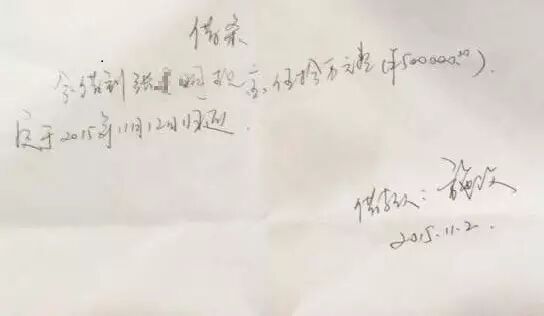 借条
今借到张 明现金伍拾万元整(¥500000.00).
定于2015年11月12日归还.
借款人:
2015.11.2.